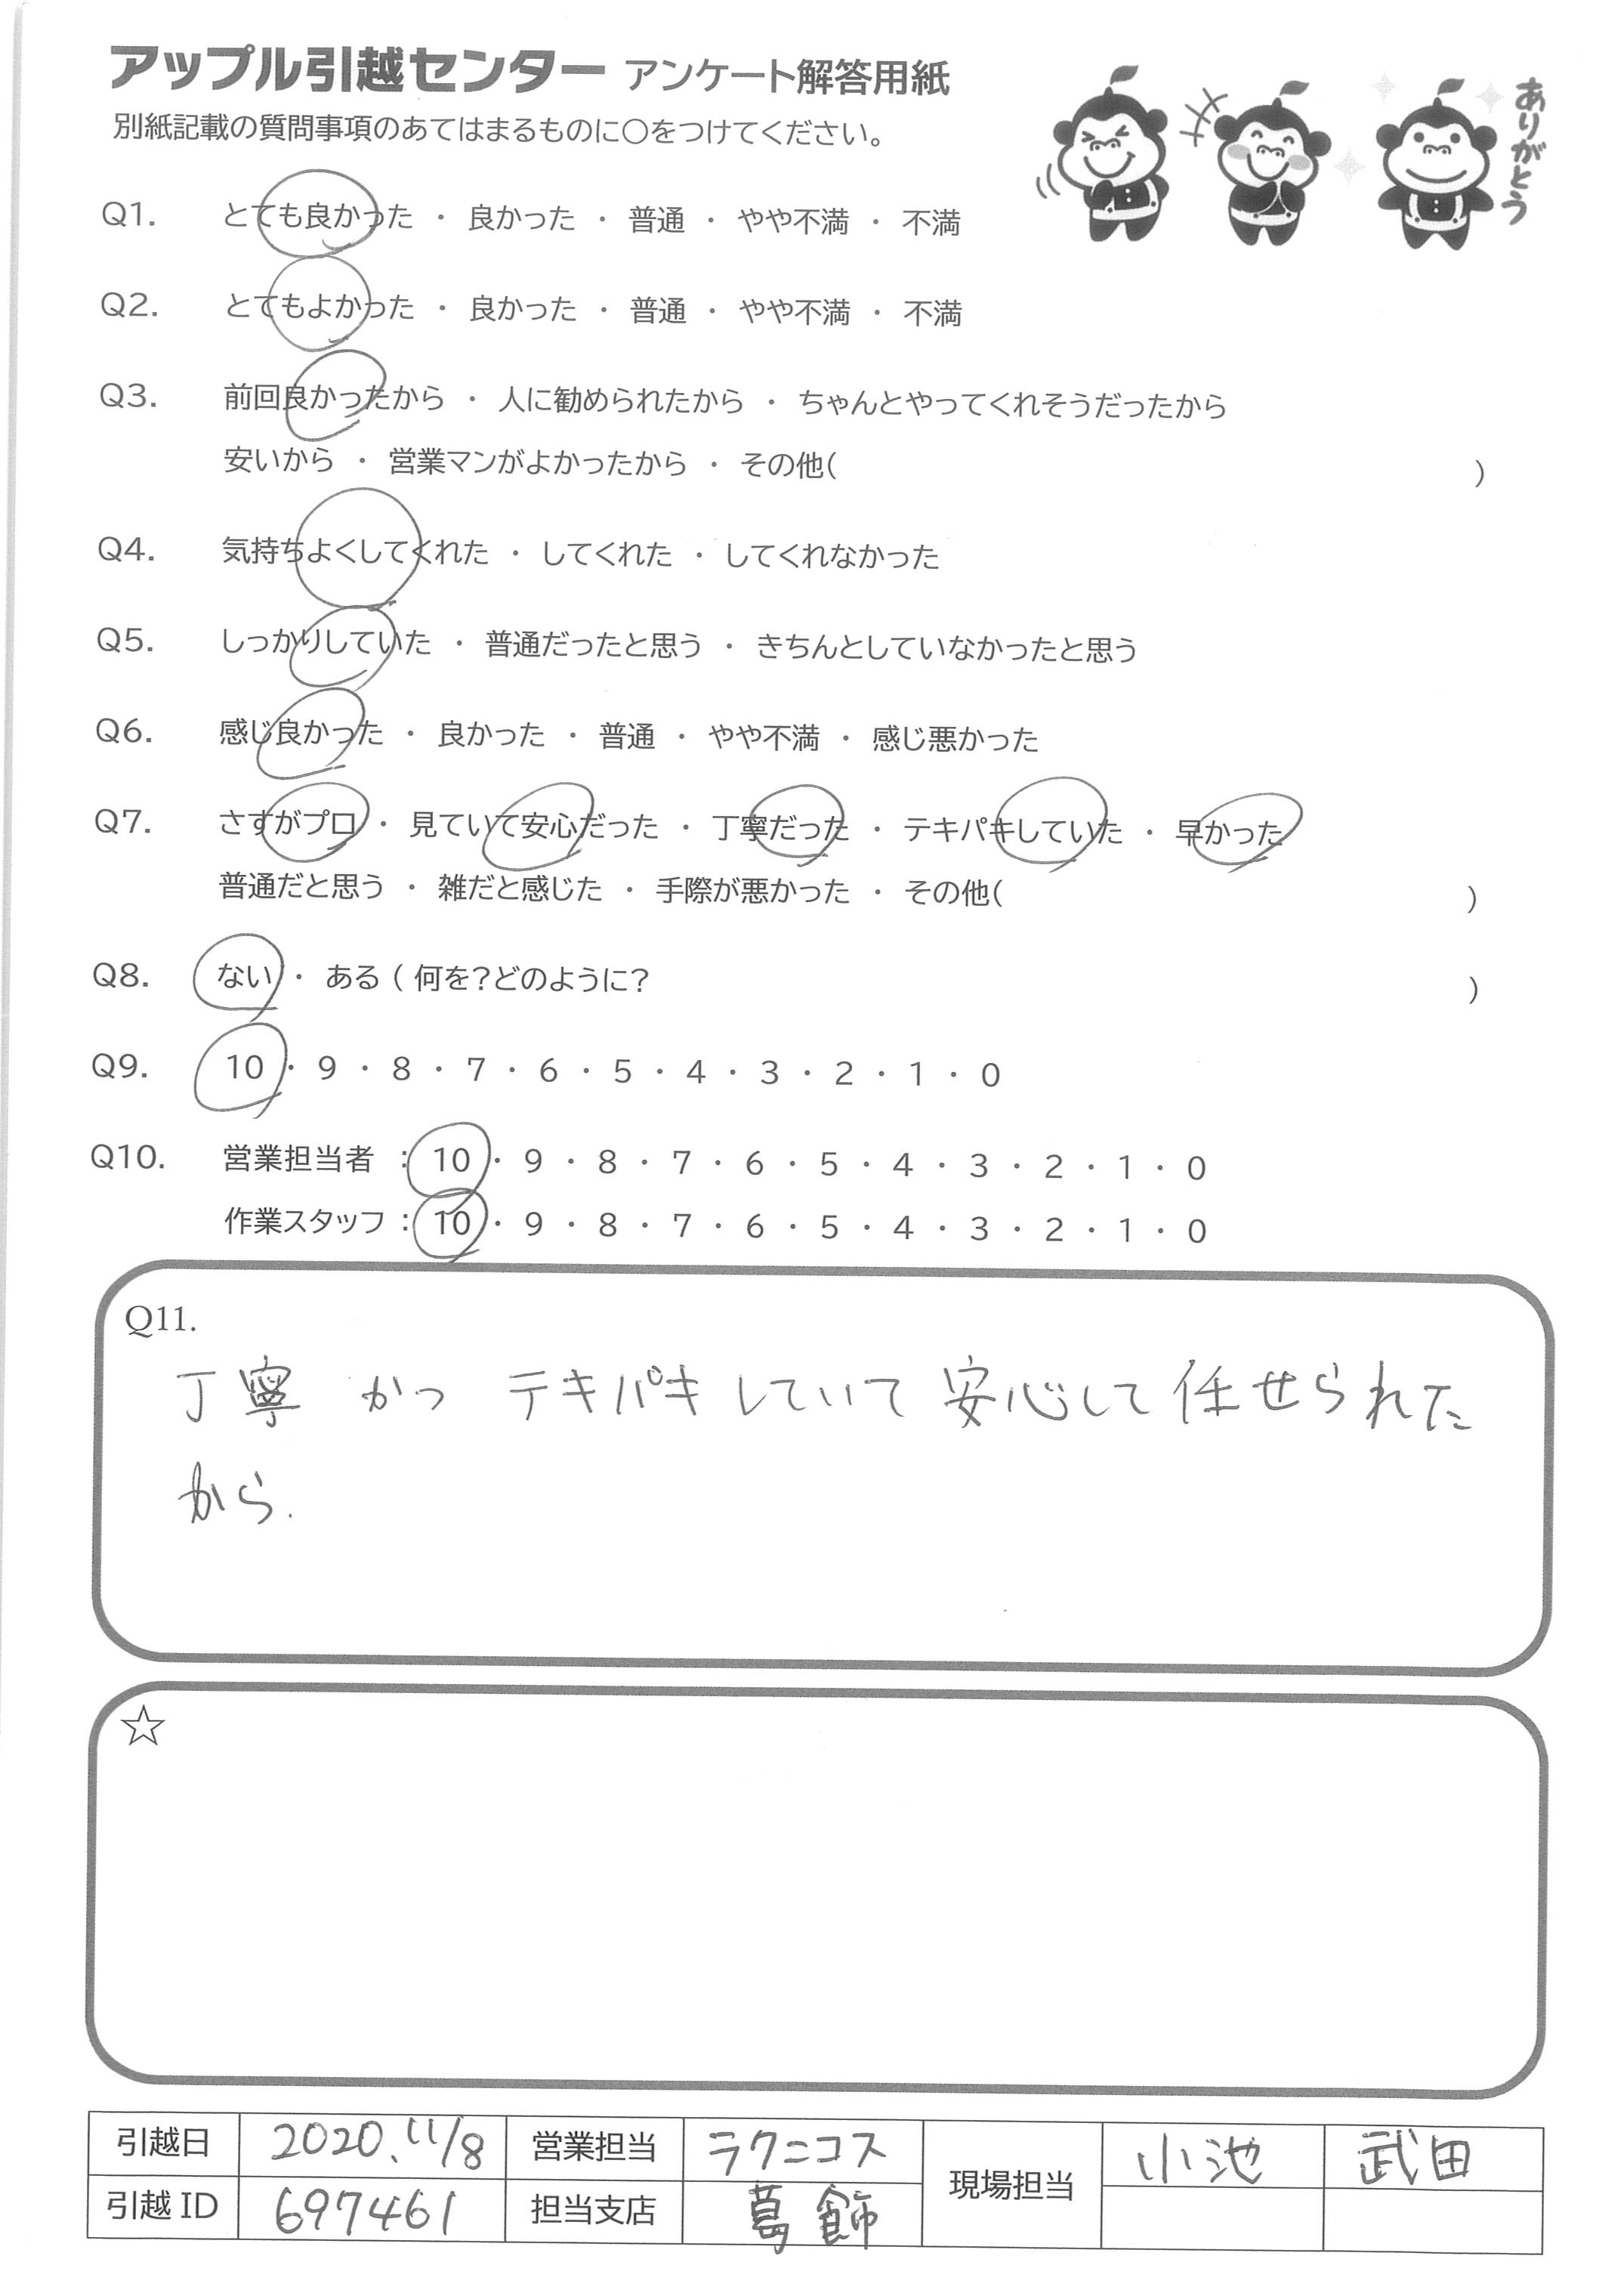 アップル引越センター アンケート解答用紙
別紙記載の質問事項のあてはまるものに○をつけてください。
ありがとう
Q1. とても良かった ・ 良かった ・ 普通 ・ やや不満 ・ 不満
Q2. とてもよかった ・ 良かった ・ 普通 ・ やや不満 ・ 不満
Q3. 前回良かったから ・ 人に勧められたから ・ ちゃんとやってくれそうだったから
安いから ・ 営業マンがよかったから ・ その他( )
Q4. 気持ちよくしてくれた ・ してくれた ・ してくれなかった
Q5. しっかりしていた ・ 普通だったと思う ・ きちんとしていなかったと思う
Q6. 感じ良かった ・ 良かった ・ 普通 ・ やや不満 ・ 感じ悪かった
Q7. さすがプロ ・ 見ていて安心だった ・ 丁寧だった ・ テキパキしていた ・ 早かった
普通だと思う ・ 雑だと感じた ・ 手際が悪かった ・ その他( )
Q8. ない ・ ある ( 何を?どのように? )
Q9. 10 ・ 9 ・ 8 ・ 7 ・ 6 ・ 5 ・ 4 ・ 3 ・ 2 ・ 1 ・ 0
Q10. 営業担当者 : 10 ・ 9 ・ 8 ・ 7 ・ 6 ・ 5 ・ 4 ・ 3 ・ 2 ・ 1 ・ 0
作業スタッフ : 10 ・ 9 ・ 8 ・ 7 ・ 6 ・ 5 ・ 4 ・ 3 ・ 2 ・ 1 ・ 0
Q11.
丁寧 かつ テキパキしていて 安心して任せられた
から.
☆
引越日 2020.11/8 営業担当 ラクニコス 現場担当 小池 武田
引越ID 697461 担当支店 葛飾